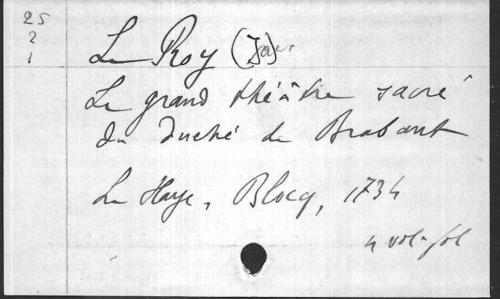 25
2
1
Le Roy (Jac)
Le grand théâtre sacré
du duché de Brabant
La Haye, Blocq, 1734
4 vol. fol